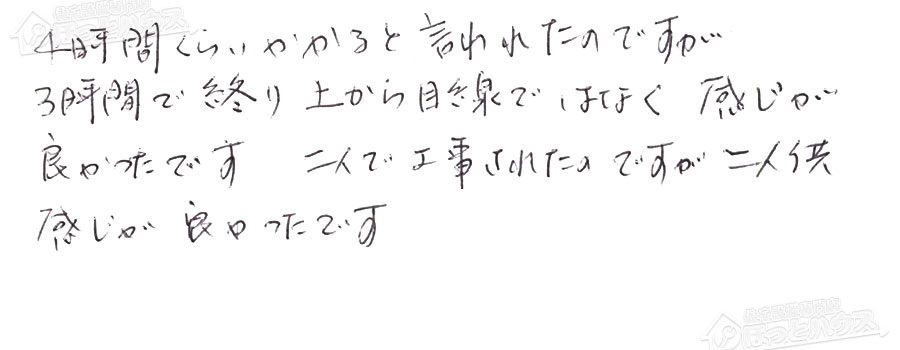 4時間くらいかかると言われたのですが
3時間で終り 上から目線ではなく 感じが
良かったです 二人で工事されたのですが二人供
感じが良かったです
ほっとハウス